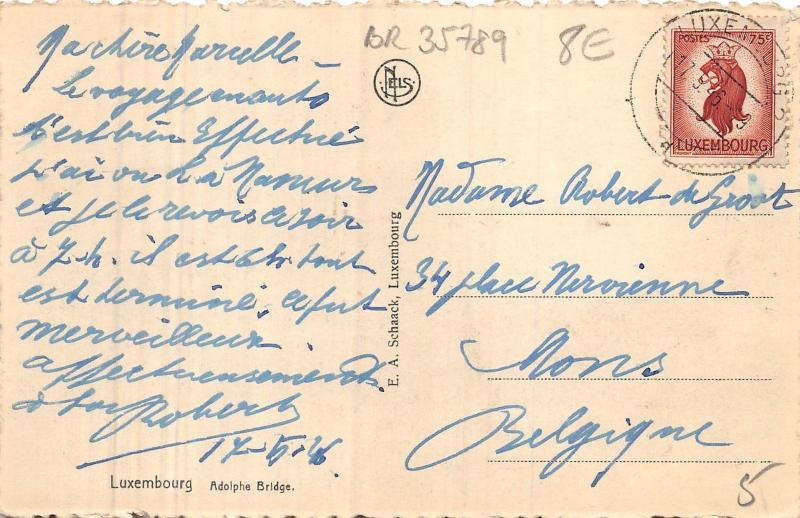 Ma chère Marcelle –
le voyage en auto
s'est bien effectué
J'ai vu à Namur
et je le revois ce soir
à 7 h. il est 6h tout
est terminé, ce fut
merveilleux
affectueusement
Robert
17-5-46
Luxembourg Adolphe Bridge.
E. A. Schaack, Luxembourg
NELS
BR 35789 8E
LUXEMBOURG 2
POSTES 75c
LUXEMBOURG
Madame Robert de Groot
34 place Nervienne
Mons
Belgique
5